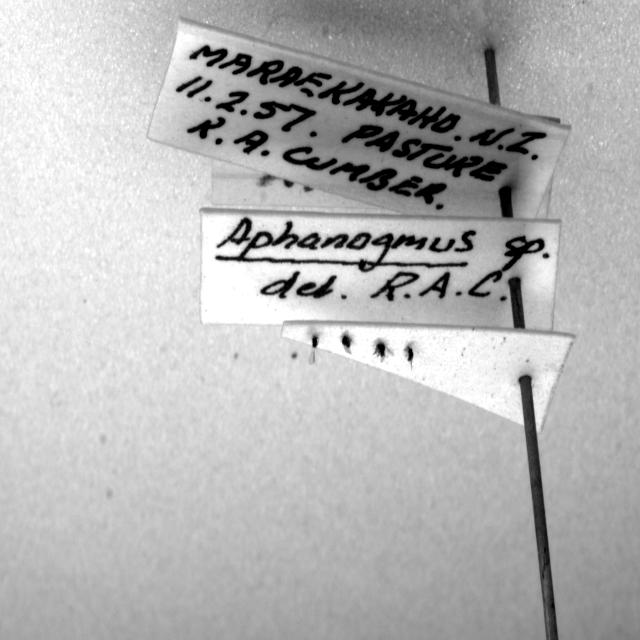 MARAEKAKAHO. N.Z.
11.2.57. PASTURE
R.A. CUMBER.
Aphanogmus sp.
det. R.A.C.